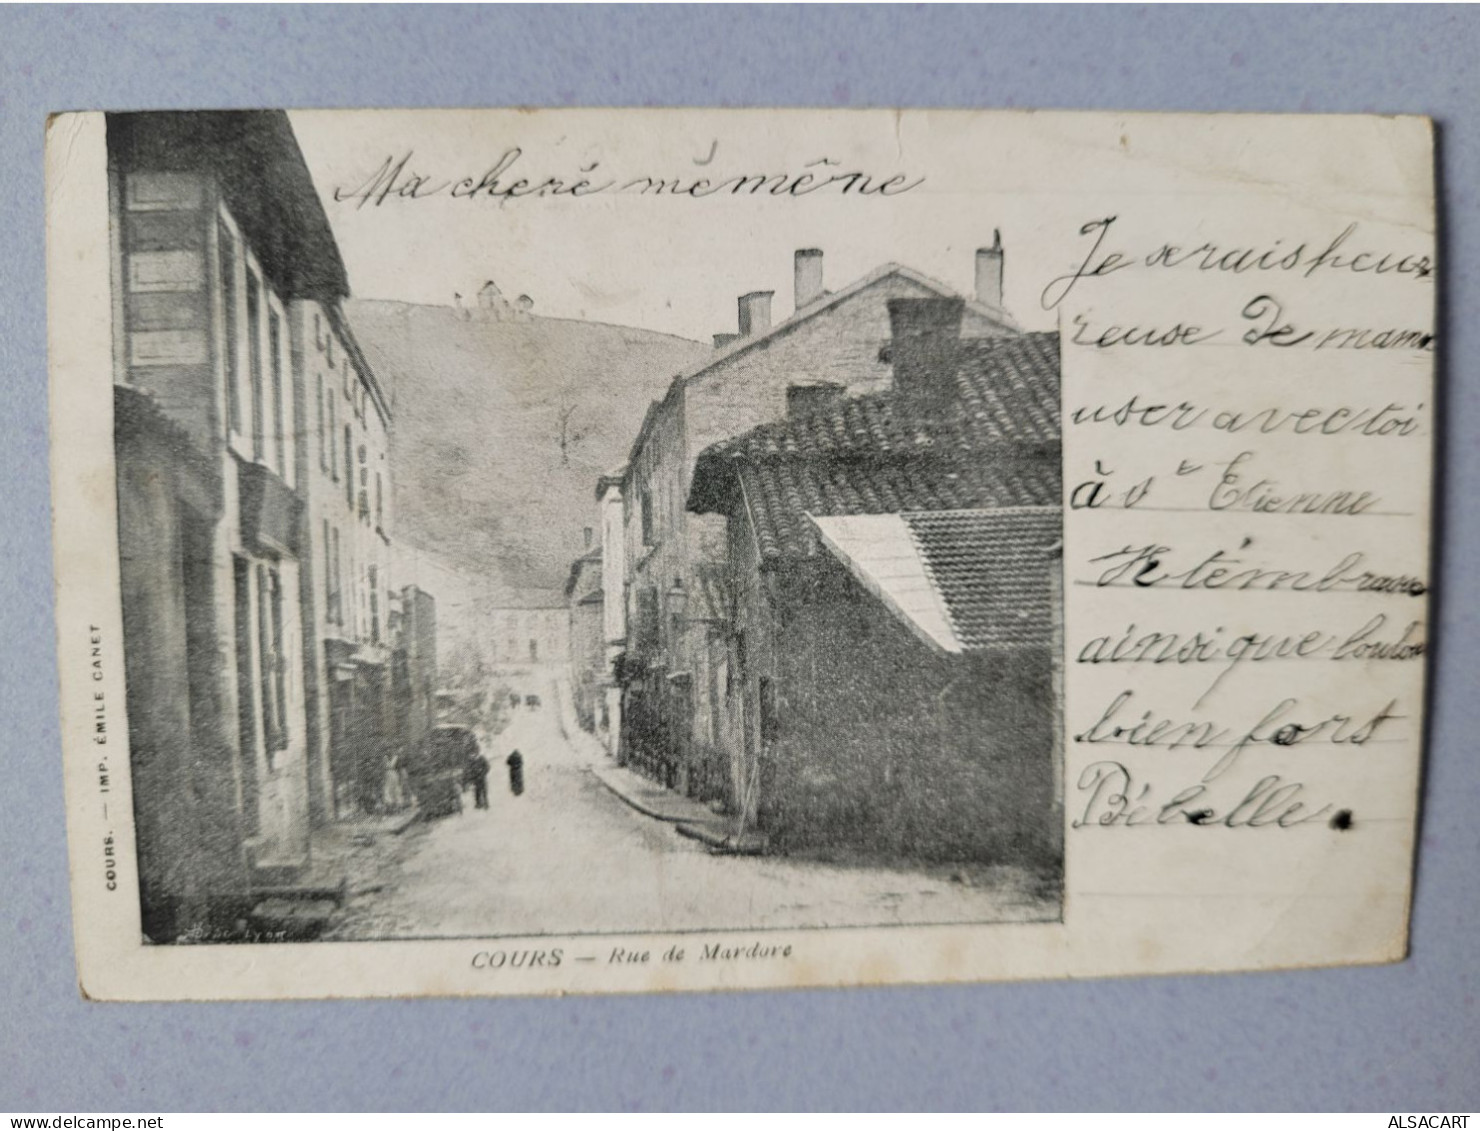 Ma cheré mémêne
Je serais heur
reuse Je mam
user avec toi
à St Etienne
Je t'émbrasse
ainsi que loulou
bien fort
Bébelle.
COURS. — IMP. ÉMILE CANET
COURS — Rue de Mardore
ALSACART